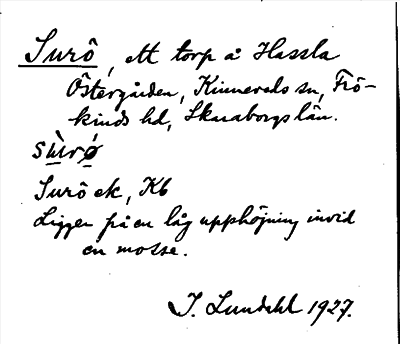 Surö, ett torp å Hassla
Östergården, Kinneveds sn, Frö-
kinds hd, Skaraborgs län.
su̇̀rǿ
Surö ek, Kb
Ligger på en låg upphöjning invid
en mosse.
I. Lundahl 1927.